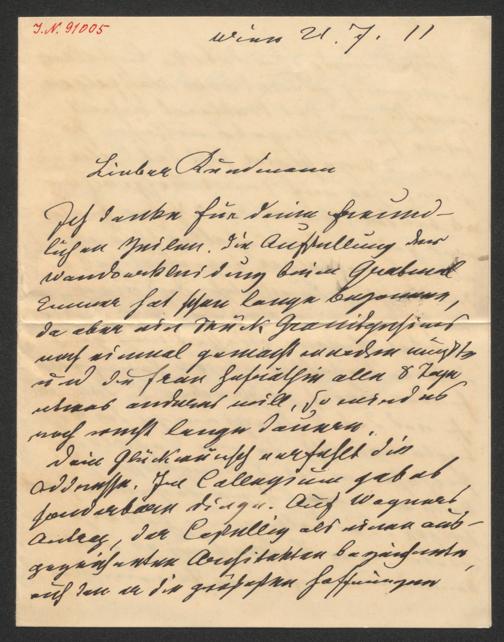 I.N. 91005
Wien 21. 7. 11
Lieber Kundmann
Ich danke für deine freund-
lichen Zeilen. Die Aufstellung der
Wandverkleidung beim Grabmal
Emmer hat schon lange begonnen,
da aber ein Stück Granitgesims
noch einmal gemacht werden mußte
und die Frau Hofräthin alle 8 Tage
etwas anderes will, so wird es
noch recht lange dauern.
Dein Glückwunsch verfehlt die
Addresse. Im Collegium gab es
sonderbare Dinge. Auf Wagners
Antrag, der als einen aus-
gezeichneten Architekten bezeichnete,
auf den er die größten Hoffnungen